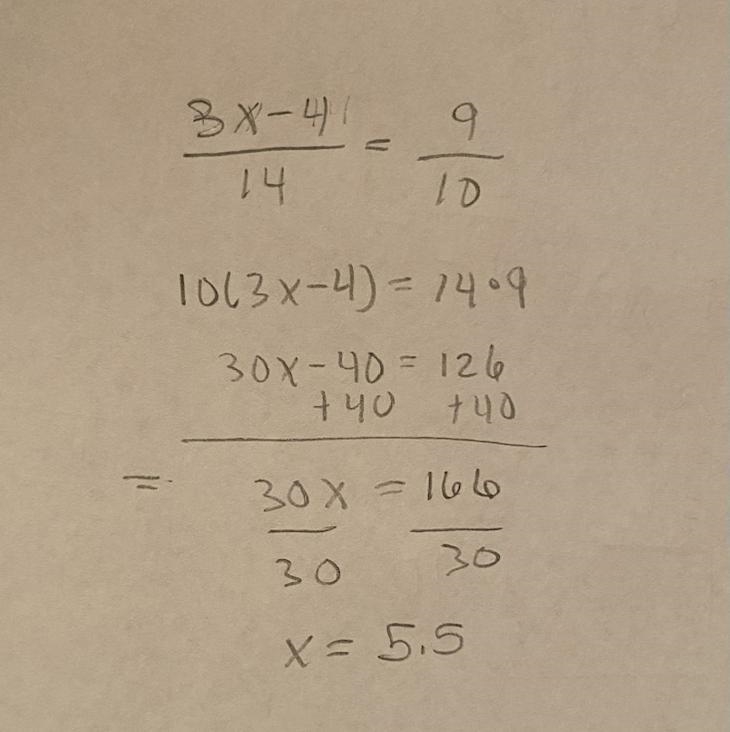 3x-4 / 14 = 9 / 10
10(3x-4) = 14•9
30x-40 = 126
+40 +40
= 30x / 30 = 166 / 30
x = 5.5